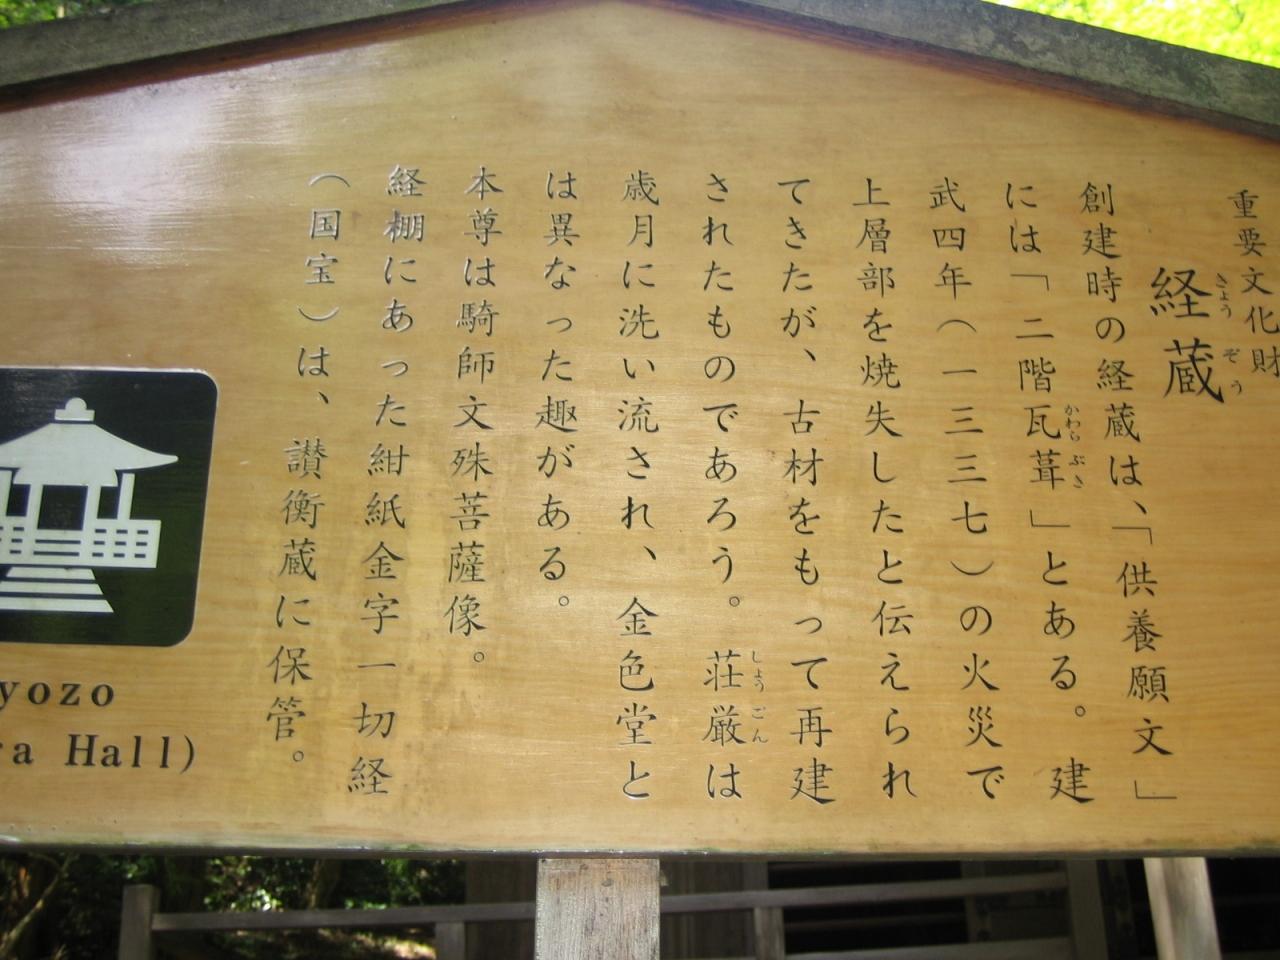 重要文化財
経蔵
きょうぞう
創建時の経蔵は、「供養願文」
には「二階瓦葺」とある。建
かわらぶき
武四年（一三三七）の火災で
上層部を焼失したと伝えられ
てきたが、古材をもって再建
されたものであろう。荘厳は
しょうごん
歳月に洗い流され、金色堂と
は異なった趣がある。
本尊は騎師文殊菩薩像。
経棚にあった紺紙金字一切経
（国宝）は、讃衡蔵に保管。
yozo
ra Hall)